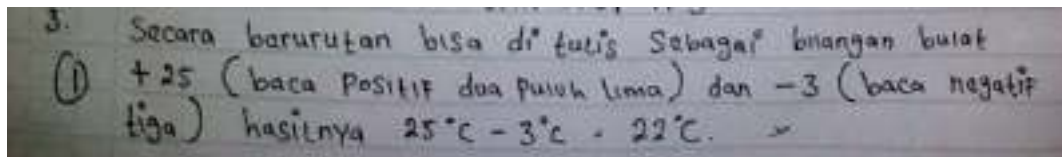 3. Secara berurutan bisa di tulis sebagai bilangan bulat
① +25 (baca Positif dua puluh lima) dan -3 (baca negatif
tiga) hasilnya 25°C - 3°C = 22°C.